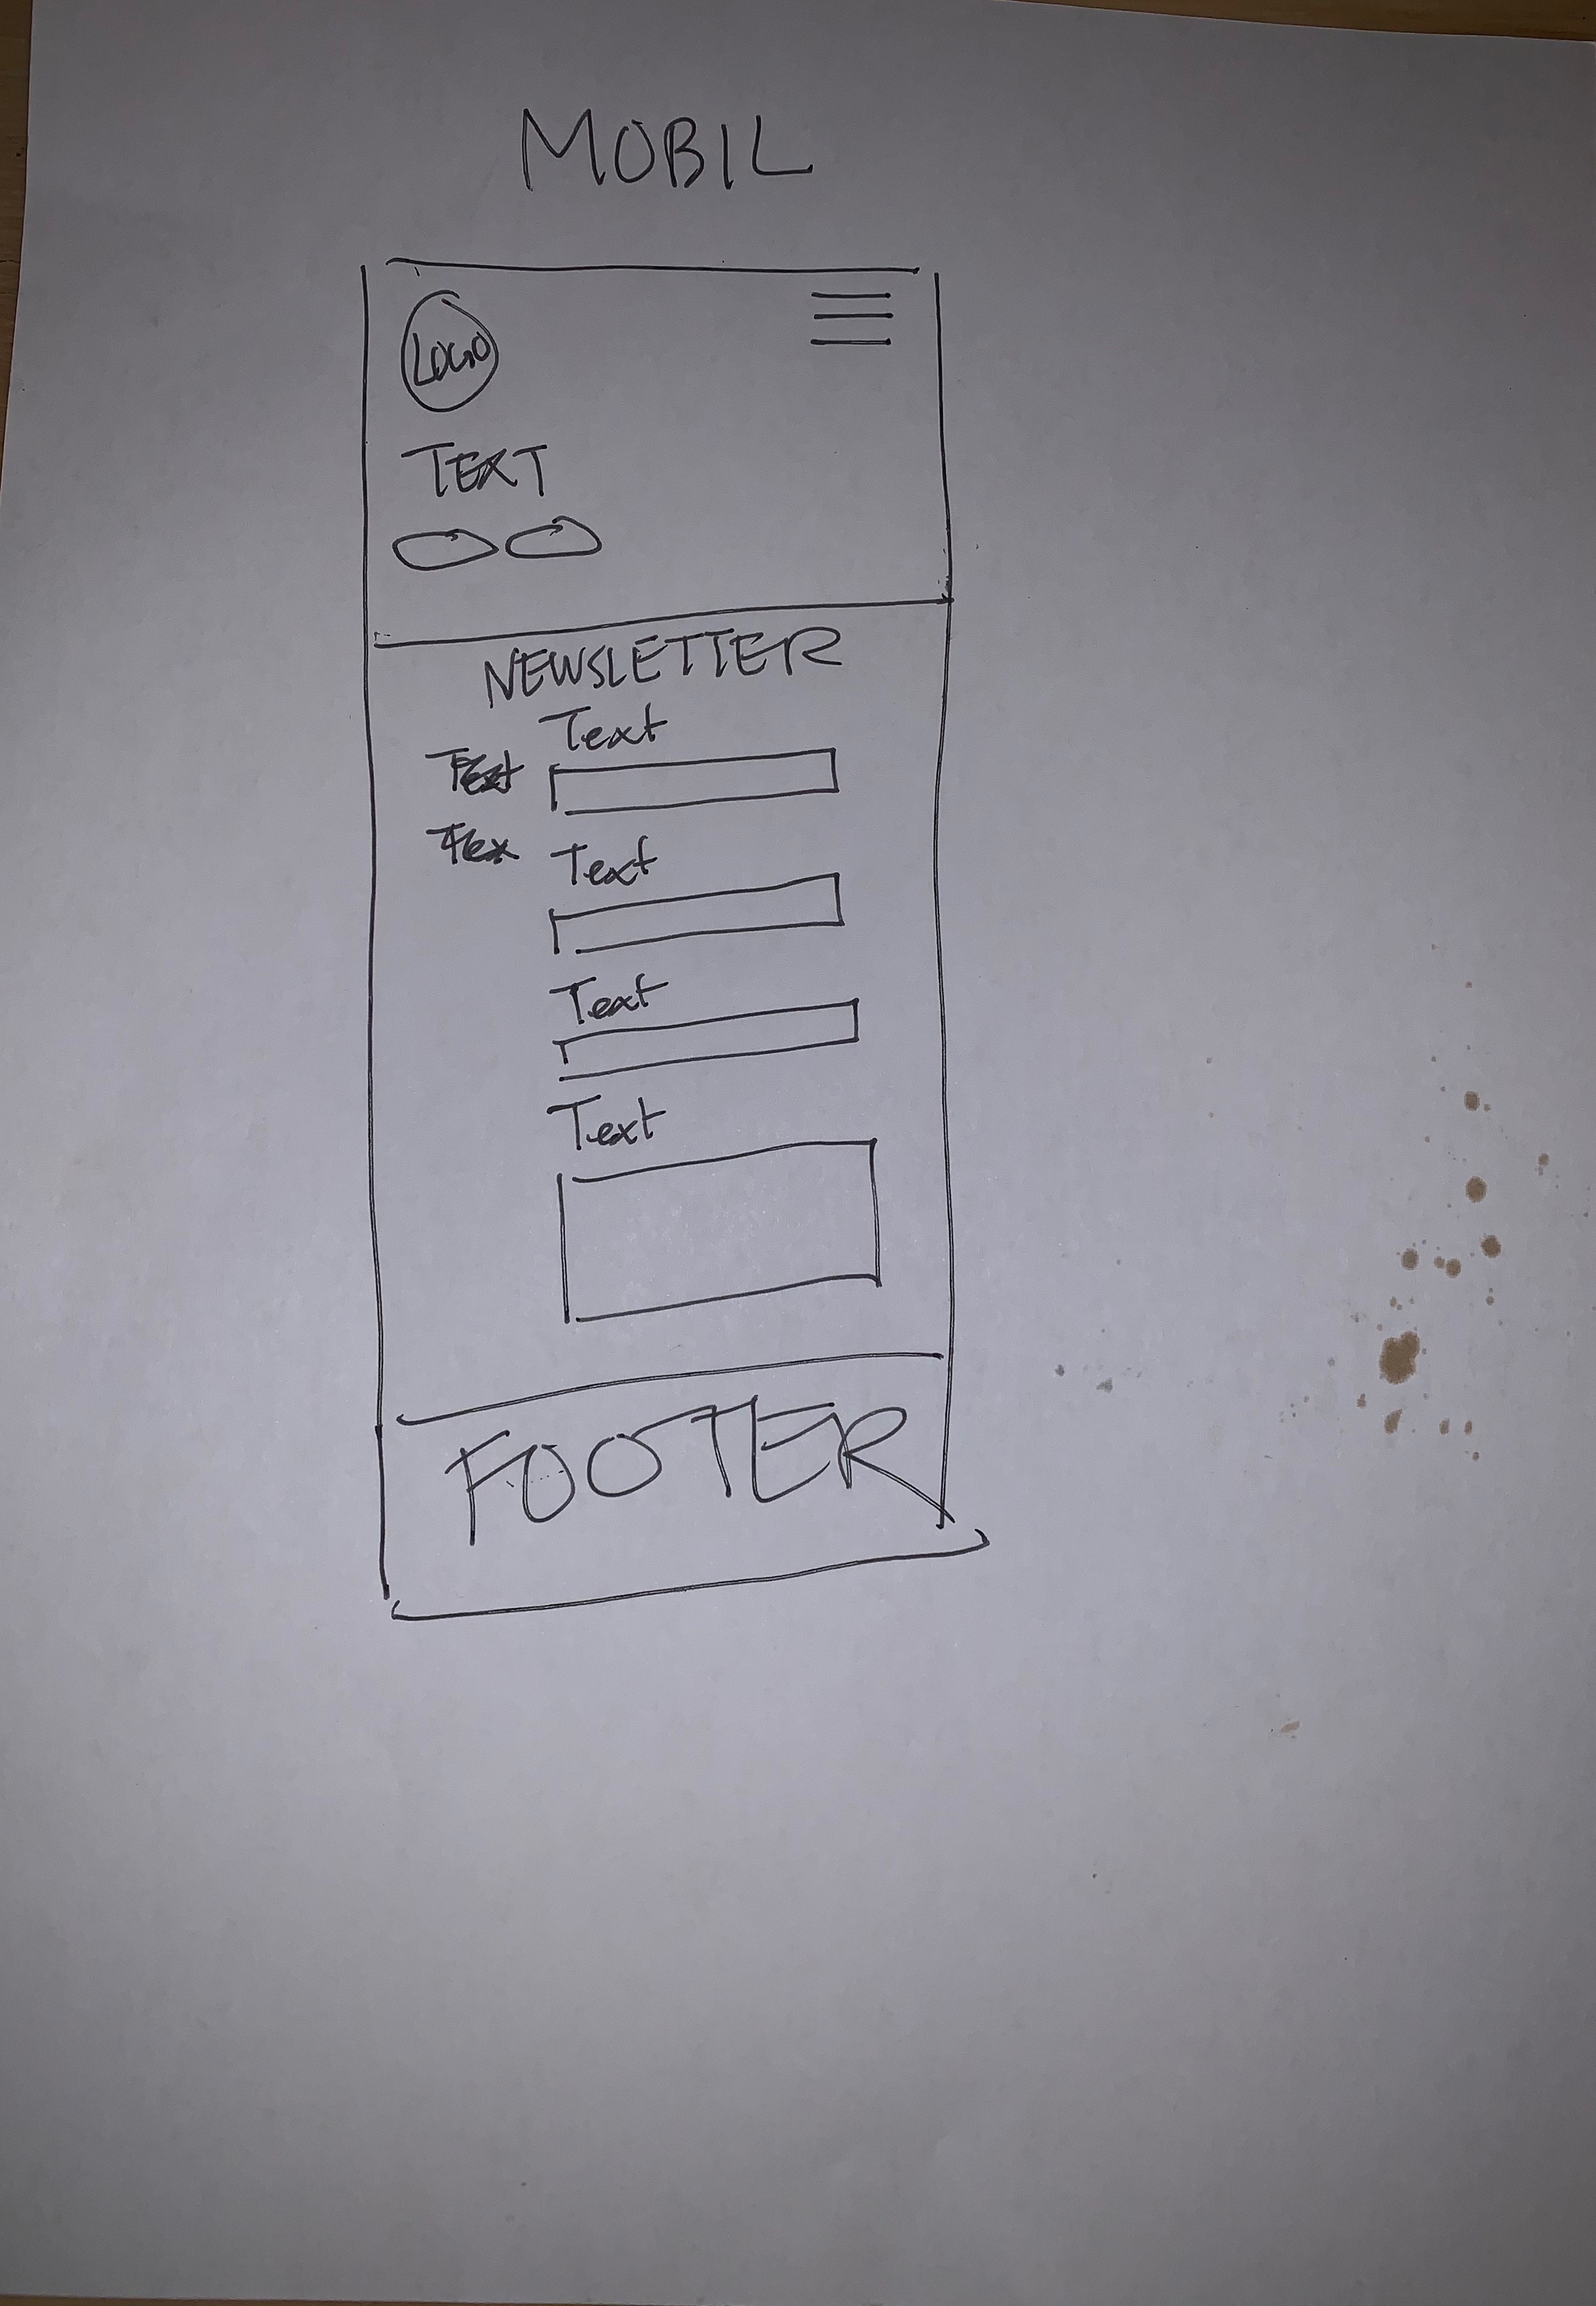 MOBIL
LOGO
TEXT
NEWSLETTER
Text
Text
Tex
Text
Text
Text
FOOTER